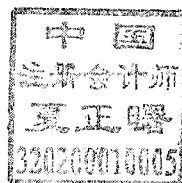 中国
注册会计师
夏正曙
320200010005